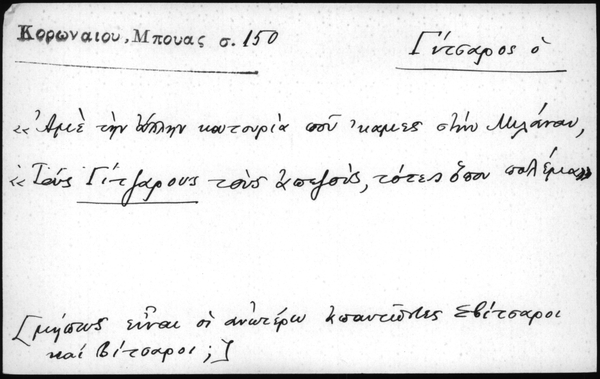 Κορωναιου, Μπουας σ. 150
Γίτσαρος ὁ
«Ἀμὲ τὴν ἄλλην κατουρία ποῦ 'καμες στὴν Μιλάναν,
«Τοὺς Γίτζαρους τοὺς ἀπεζούς, τότες ὅπου πολέμα»
[μήπως εἶναι οἱ ἀνωτέρω ἀπαντῶντες Σβίτσαροι
καὶ Βίτσαροι;]